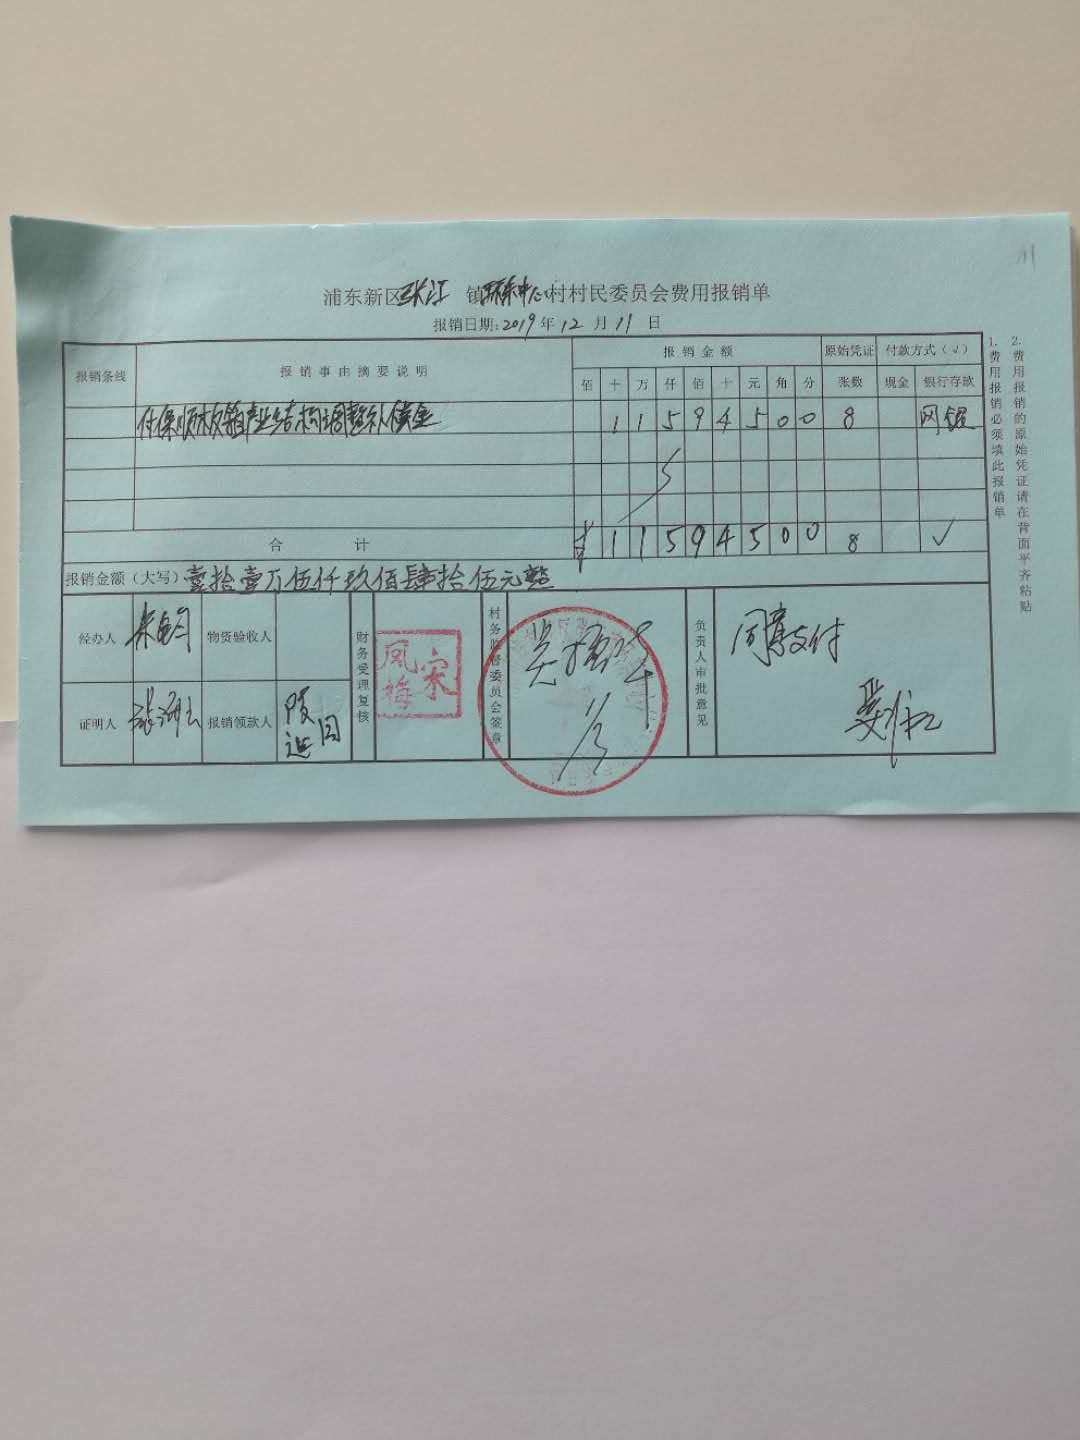 浦东新区张江镇环东中心村村民委员会费用报销单
报销日期:2019年12月11日
报销条线 报销事由摘要说明 报销金额 原始凭证 付款方式(√)
佰 十 万 仟 佰 十 元 角 分 张数 现金 银行存款
产业结构调整补偿金 1 1 5 9 4 5 0 0 8 网银
合计 ¥ 1 1 5 9 4 5 0 0 8 √
报销金额(大写) 壹拾壹万伍仟玖佰肆拾伍元整
经办人 物资验收人
证明人 报销领款人
财务受理复核
宋凤梅
村务监督委员会签章
负责人审批意见
同意支付
1.费用报销必须填此报销单
2.费用报销的原始凭证请在背面平齐粘贴